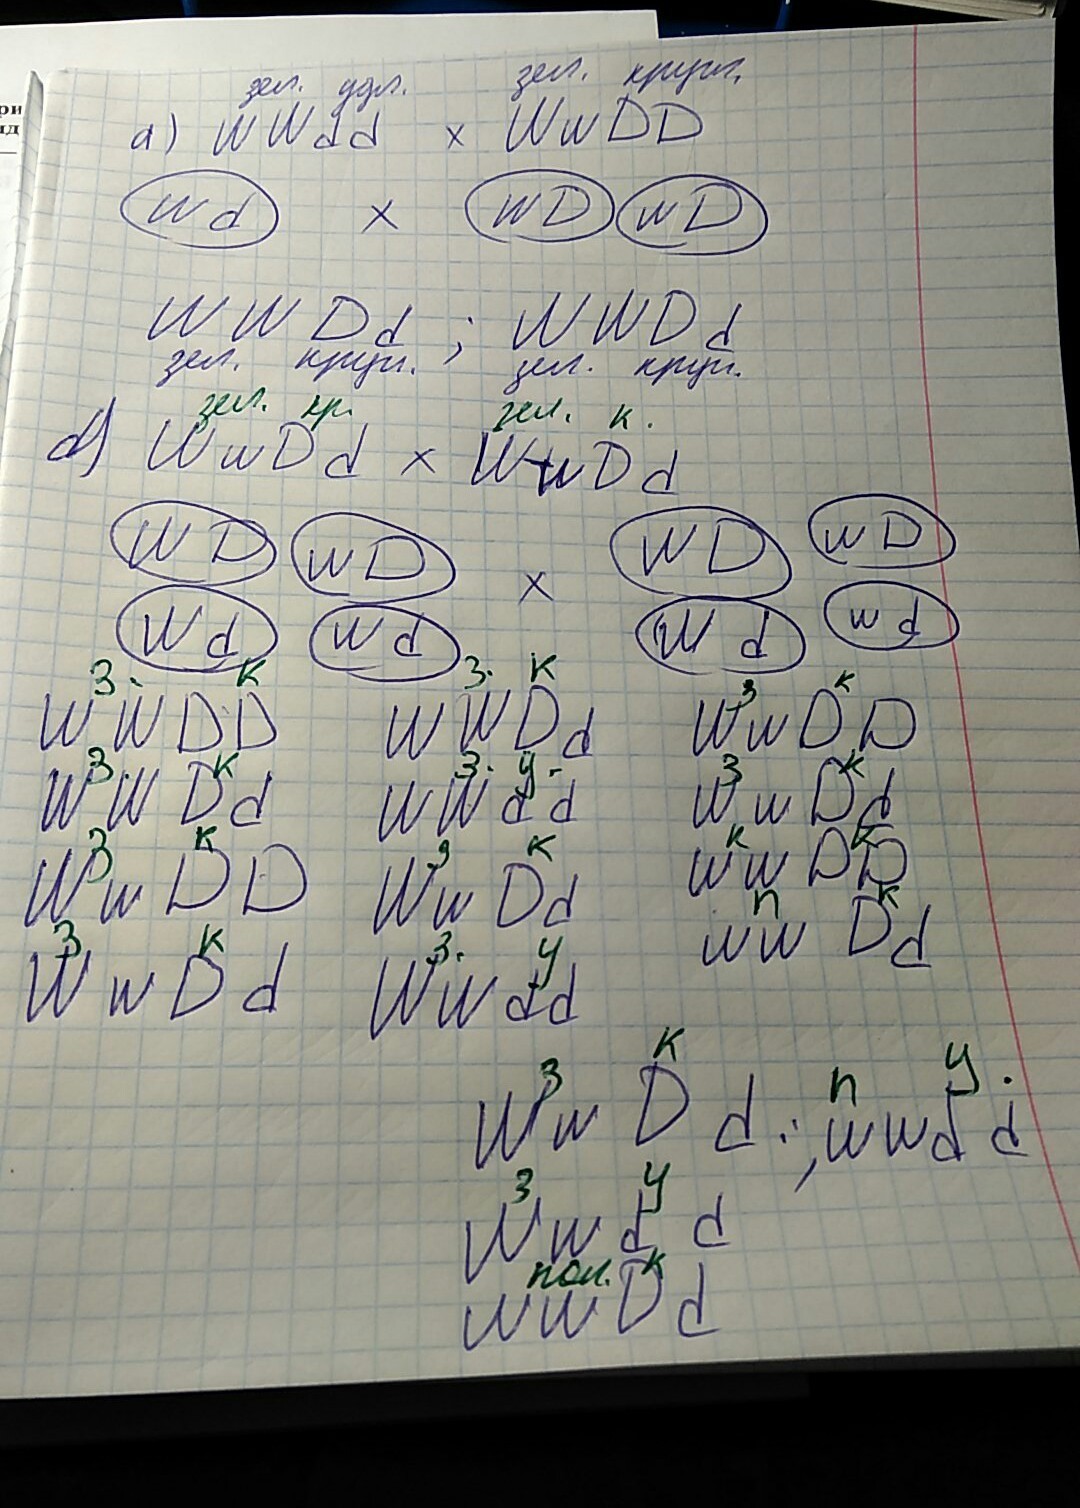 ри
ид
зел. удл. зел. кругл.
а) WWdd × WwDD
Wd × WD wD
WWDd ; WWDd
зел. кругл. зел. кругл.
зел. кр. зел. к.
d) WwDd × WwDd
WD wD × WD wD
Wd wd Wd wd
з. к з. к з к
WWDD WWDd WwDD
з. к з. у. з к
WWDd WWdd WwDd
з к з к к к
WwDD WwDd wwDD
з к з. у п к
WwDd Wwdd wwDd
з к п у.
WwDd ; wwdd
з у
Wwdd
пол. к
wwDd